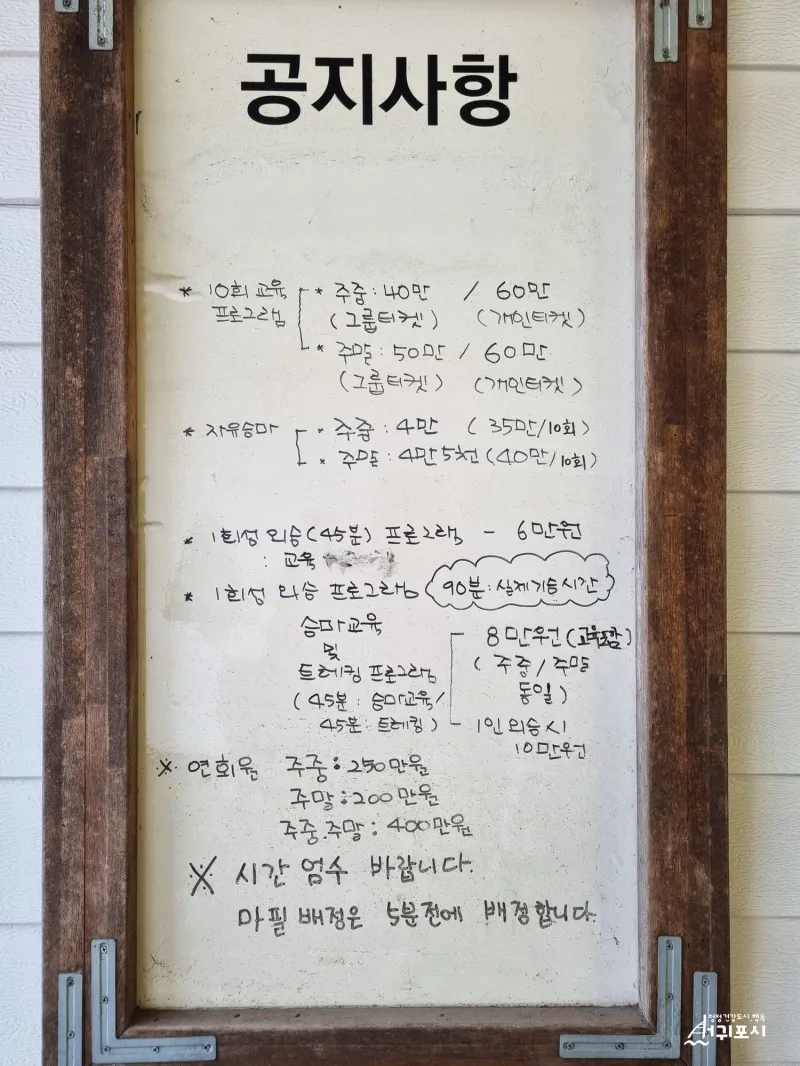 공지사항
* 10회 교육 * 주중 : 40만 / 60만
프로그램 (그룹티켓) (개인티켓)
* 주말 : 50만 / 60만
(그룹티켓) (개인티켓)
* 자유승마 · 주중 : 4만 (35만/10회)
· 주말 : 4만5천 (40만/10회)
* 1회성 외승(45분) 프로그램 - 6만원
: 교육
* 1회성 외승 프로그램 90분 : 실제기승시간
승마교육 8만원 (교육포함)
및 (주중/주말
트레킹 프로그램 동일)
(45분 : 승마교육/
45분 : 트레킹) 1인 외승시
10만원
※ 연회원 주중 : 250만원
주말 : 200만원
주중.주말 : 400만원
※ 시간 엄수 바랍니다.
마필 배정은 5분전에 배정합니다.
청정 건강도시, 행복
서귀포시